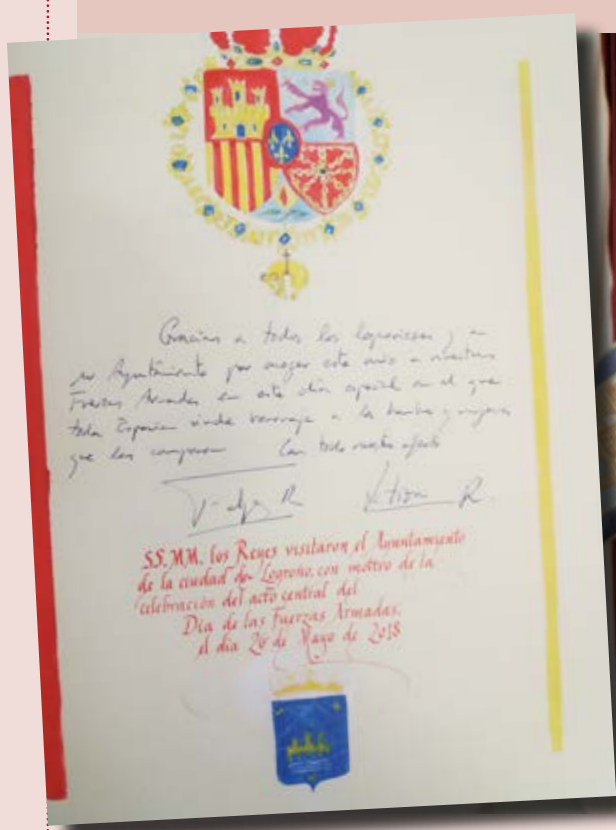 Gracias a todos los logroñeses y a
su Ayuntamiento por acoger este año a nuestras
Fuerzas Armadas en este día especial en el que
toda España rinde homenaje a los hombres y mujeres
que las componen Con todo nuestro afecto
Felipe R Letizia R.
SS.MM. los Reyes visitaron el Ayuntamiento
de la ciudad de Logroño, con motivo de la
celebración del acto central del
Día de las Fuerzas Armadas,
el día 26 de Mayo de 2018